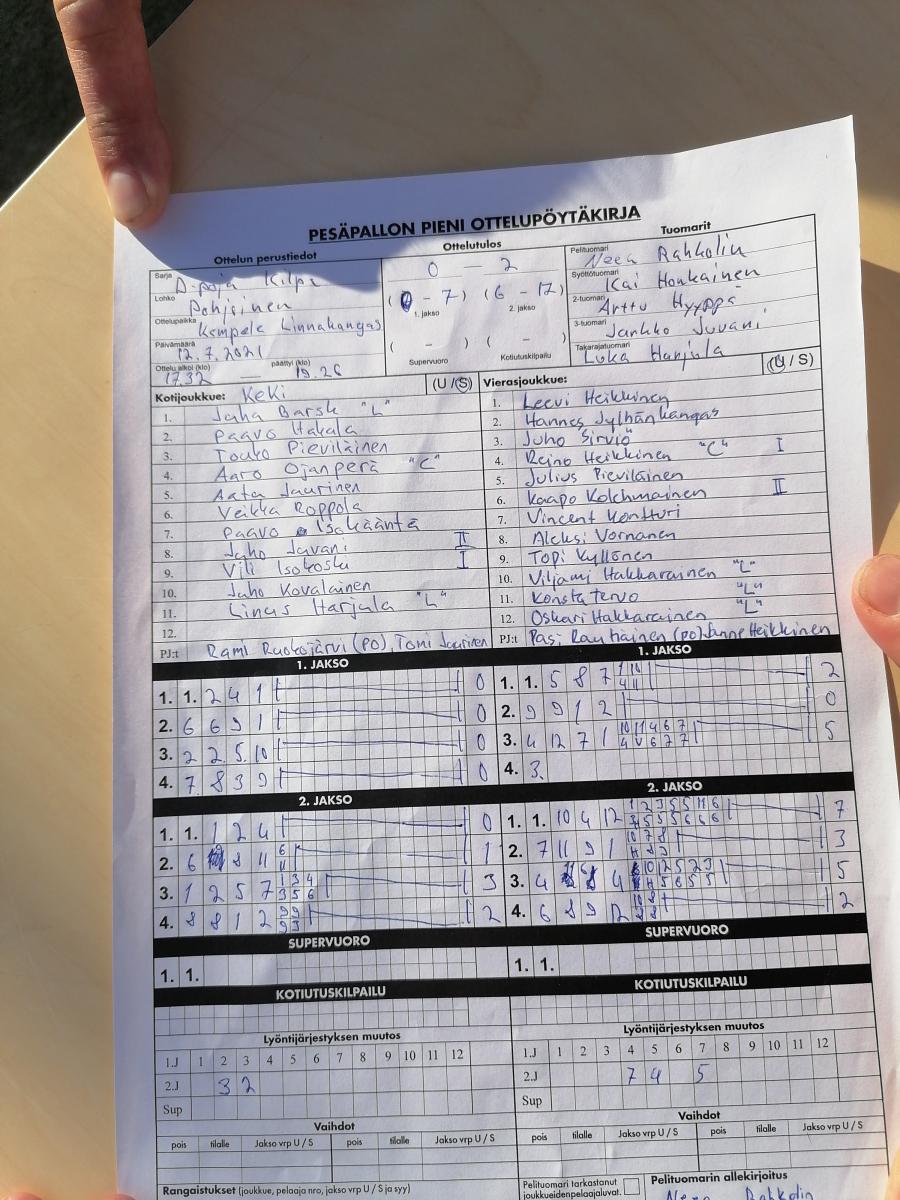 PESÄPALLON PIENI OTTELUPÖYTÄKIRJA
Ottelun perustiedot
Ottelutulos
Tuomarit
Sarja D-poja Kilpi
Lohko Pohjoinen
Ottelupaikka Kempele Linnakangas
Päivämäärä 12.7.2021
Ottelu alkoi (klo) 17.32 — päättyi (klo) 19.26
0 — 2
(0 - 7) (6 - 17)
1. jakso 2. jakso
( - ) ( - )
Supervuoro Kotiutuskilpailu
Pelituomari Neea Rahkolin
Syöttötuomari Kai Honkainen
2-tuomari Arttu Hyyppä
3-tuomari Jarkko Juvani
Takarajatuomari Luka Harjula
Kotijoukkue: KeKi (U / S)
1. Juha Barsk "L"
2. Paavo Hakala
3. Touko Pieviläinen
4. Aaro Ojanperä "C"
5. Aatu Jaurinen
6. Veikka Roppola
7. Paavo Isokääntä
8. Juho Juvani II
9. Vili Isokoski I
10. Juho Kovalainen
11. Linus Harjula "L"
12.
PJ:t Rami Ruokojärvi (PO), Tomi Jaurinen
Vierasjoukkue: (U / S)
1. Leevi Heikkinen
2. Hannes Jylhänkangas
3. Juho Sirviö
4. Reino Heikkinen "C" I
5. Julius Pieviläinen
6. Kaapo Kolehmainen II
7. Vincent Kontturi
8. Aleksi Vornanen
9. Topi Kyllönen
10. Viljami Hakkarainen "L"
11. Konsta Tervo "L"
12. Oskari Hakkarainen "L"
PJ:t Pasi Rautiainen (PO) Heikkinen
1. JAKSO
1. 1. 2 4 1 0
2. 6 6 9 1 0
3. 2 2 5 10 0
4. 7 8 3 9 0
1. JAKSO
1. 1. 5 8 7 2
2. 9 9 1 2 0
3. 4 12 7 1 5
4. 3.
2. JAKSO
1. 1. 1 2 4 0
2. 6 8 11 1
3. 1 2 5 7 3
4. 8 8 1 2 2
2. JAKSO
1. 1. 10 4 12 7
2. 7 11 9 1 3
3. 4 4 5
4. 6 8 9 12 2
SUPERVUORO
1. 1.
SUPERVUORO
1. 1.
KOTIUTUSKILPAILU
KOTIUTUSKILPAILU
Lyöntijärjestyksen muutos
1.J 1 2 3 4 5 6 7 8 9 10 11 12
2.J 3 2
Sup
Lyöntijärjestyksen muutos
1.J 1 2 3 4 5 6 7 8 9 10 11 12
2.J 7 4 5
Sup
Vaihdot
pois tilalle Jakso vrp U / S pois tilalle Jakso vrp U / S
Vaihdot
pois tilalle Jakso vrp U / S pois tilalle Jakso vrp U / S
Rangaistukset (joukkue, pelaaja nro, jakso vrp U / S ja syy)
Pelituomari tarkastanut
joukkueidenpelaajaluvat.
Pelituomarin allekirjoitus
Neea Rahkolin